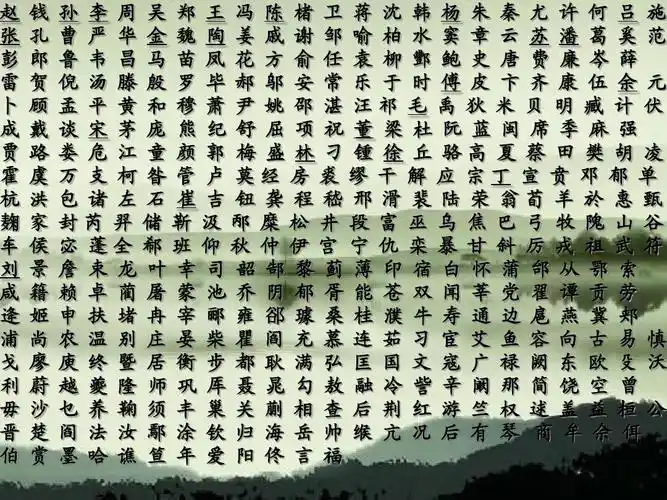 赵 钱 孙 李 周 吴 郑 王 冯 陈 楮 卫 蒋 沈 韩 杨 朱 秦 尤 许 何 吕 施
张 孔 曹 严 华 金 魏 陶 姜 戚 谢 邹 喻 柏 水 窦 章 云 苏 潘 葛 奚 范
彭 郎 鲁 韦 昌 马 苗 凤 花 方 俞 任 袁 柳 酆 鲍 史 唐 费 廉 岑 薛
雷 贺 倪 汤 滕 殷 罗 毕 郝 邬 安 常 乐 于 时 傅 皮 卞 齐 康 伍 余 元
卜 顾 孟 平 黄 和 穆 萧 尹 姚 邵 湛 汪 祁 毛 禹 狄 米 贝 明 臧 计 伏
成 戴 谈 宋 茅 庞 熊 纪 舒 屈 项 祝 董 梁 杜 阮 蓝 闽 席 季 麻 强
贾 路 娄 危 江 童 颜 郭 梅 盛 林 刁 锺 徐 丘 骆 高 夏 蔡 田 樊 胡 凌
霍 虞 万 支 柯 昝 管 卢 莫 经 房 裘 缪 干 解 应 宗 丁 宣 贲 邓 郁 单
杭 洪 包 诸 左 石 崔 吉 钮 龚 程 嵇 邢 滑 裴 陆 荣 翁 荀 羊 於 惠 甄
麹 家 封 芮 羿 储 靳 汲 邴 糜 松 井 段 富 巫 乌 焦 巴 弓 牧 隗 山 谷
车 侯 宓 蓬 全 郗 班 仰 秋 仲 伊 宫 宁 仇 栾 暴 甘 斜 厉 戎 祖 武 符
刘 景 詹 束 龙 叶 幸 司 韶 郜 黎 蓟 薄 印 宿 白 怀 蒲 邰 从 鄂 索
咸 籍 赖 卓 蔺 屠 蒙 池 乔 阴 郁 胥 能 苍 双 闻 莘 党 翟 谭 贡 劳
逄 姬 申 扶 堵 冉 宰 郦 雍 郤 璩 桑 桂 濮 牛 寿 通 边 扈 燕 冀 郏
浦 尚 农 温 别 庄 晏 柴 瞿 阎 充 慕 连 茹 习 宦 艾 鱼 容 向 古 易 慎
戈 廖 庚 终 暨 居 衡 步 都 耿 满 弘 匡 国 文 寇 广 禄 阙 东 欧 殳 沃
利 蔚 越 夔 隆 师 巩 厍 聂 晁 勾 敖 融 冷 訾 辛 阚 那 简 饶 空 曾
毋 沙 乜 养 鞠 须 丰 巢 关 蒯 相 查 后 荆 红 游 竺 权 逑 盖 益 桓 公
晋 楚 阎 法 汝 鄢 涂 钦 归 海 岳 帅 缑 亢 况 后 有 琴 商 牟 佘 佴
伯 赏 墨 哈 谯 笪 年 爱 阳 佟 言 福